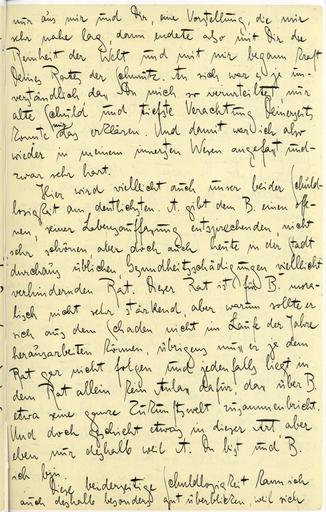 nur aus mir und Dir, eine Vorstellung, die mir
sehr nahe lag, dann endete also mit Dir die
Reinheit der Welt und mit mir begann kraft
Deines Rates der Schmutz. An sich war es ja un-
verständlich dass Du mich so verurteiltest, nur
alte Schuld und tiefste Verachtung Deinerseits
konnte mir das erklären. Und damit war ich also
wieder in meinem innersten Wesen angefasst und
zwar sehr hart.
Hier wird vielleicht auch unser beider Schuld-
losigkeit am deutlichsten. A. gibt dem B. einen offe-
nen, seiner Lebensauffassung entsprechenden, nicht
sehr schönen aber doch auch heute in der Stadt
durchaus üblichen, Gesundheitsschädigungen vielleicht
verhindernden Rat. Dieser Rat ist für B. mora-
lisch nicht sehr stärkend, aber warum sollte er
sich aus dem Schaden nicht im Laufe der Jahre
herausarbeiten können, übrigens muss er ja dem
Rat gar nicht folgen und jedenfalls liegt in
dem Rat allein kein Anlass dafür, dass über B.
etwa seine ganze Zukunftswelt zusammenbricht.
Und doch geschieht etwas in dieser Art aber
eben nur deshalb weil A. Du bist und B.
ich bin.
Diese beiderseitige Schuldlosigkeit kann ich
auch deshalb besonders gut überblicken, weil sich